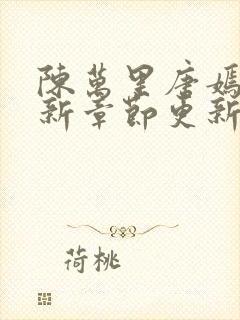 陳萬里唐嫣
新章節更新
荷桃